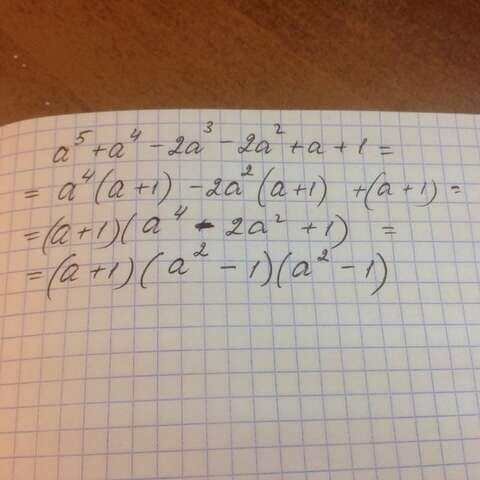 a⁵ + a⁴ - 2a³ - 2a² + a + 1 =
= a⁴(a + 1) - 2a²(a + 1) + (a + 1) =
= (a + 1)(a⁴ - 2a² + 1) =
= (a + 1)(a² - 1)(a² - 1)